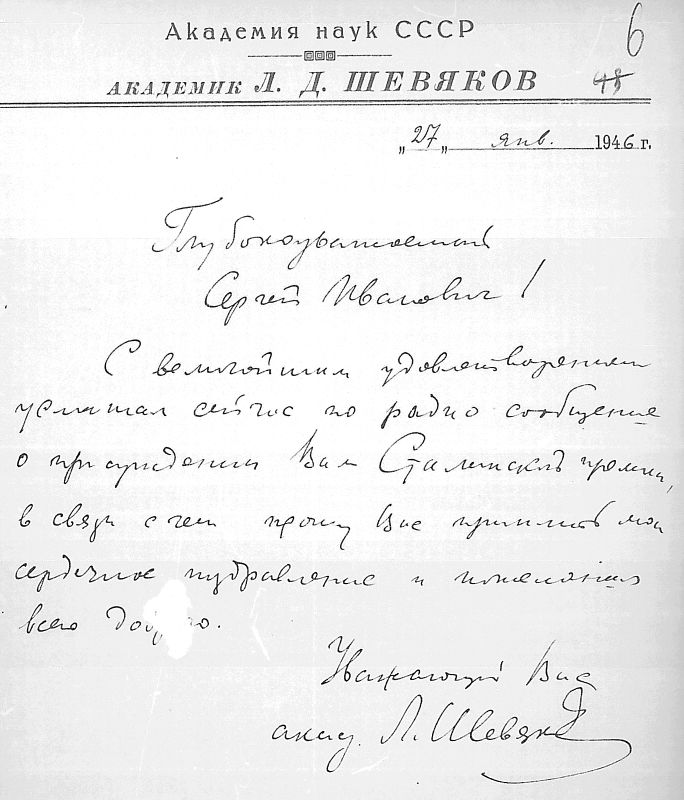 Академия наук СССР
6
АКАДЕМИК Л. Д. ШЕВЯКОВ
48
„27„ янв. 1946 г.
Глубокоуважаемый
Сергей Иванович!
С величайшим удовлетворением
услышал сейчас по радио сообщение
о присуждении Вам Сталинской премии,
в связи с чем прошу Вас принять мои
сердечное поздравление и пожелания
всего доброго.
Уважающий Вас
акад. Л. Шевяков